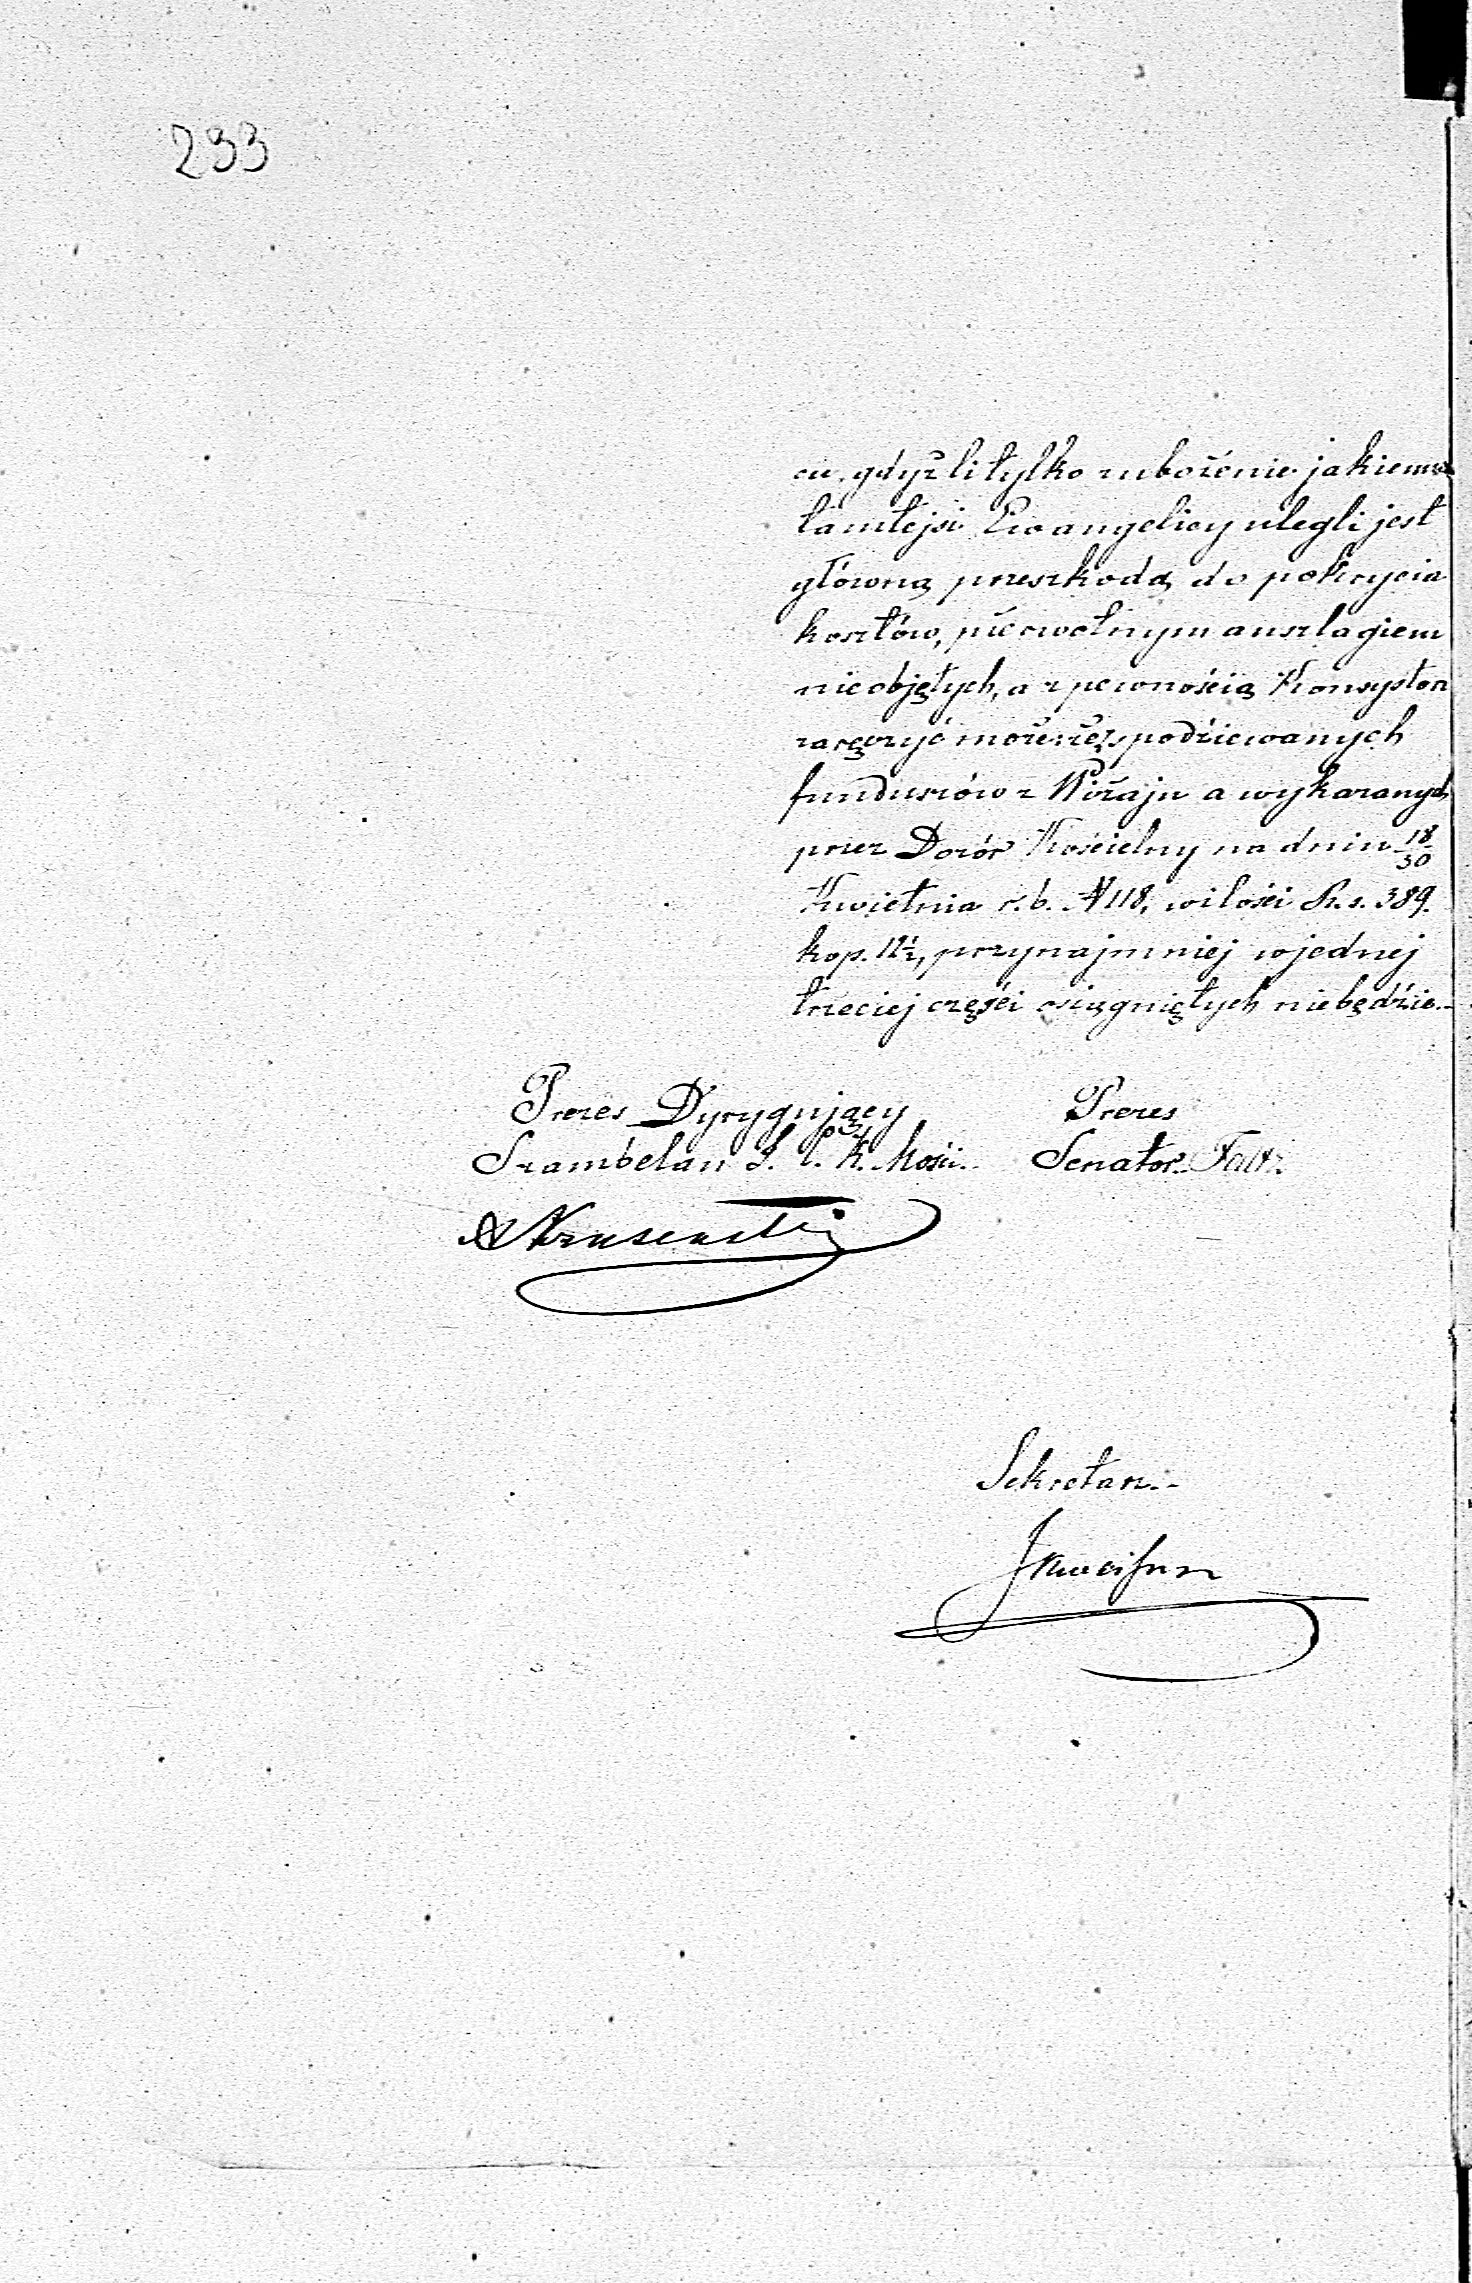 233
cu, gdyż li tylko zubożenie jakiemu
tamtejsi Ewangelicy ulegli jest
główną przeszkodą do pokrycia
kosztów, pierwotnym anszlagiem
nieobjętych, a z pewnością Konsystorz
zaręczyć może: że z spodziewanych
funduszów z Wiżajn a wykazanych
przez Dozór Kościelny na dniu 18/30
Kwietnia r. b. N 118, wilości R. s. 389.
kop. 12½, przynajmniej w jednej
trzeciej części osiągniętych niebędzie.
Prezes Dyrygujący Prezes
Szambelan J. C. K. Mości. Senator
Sekretarz.